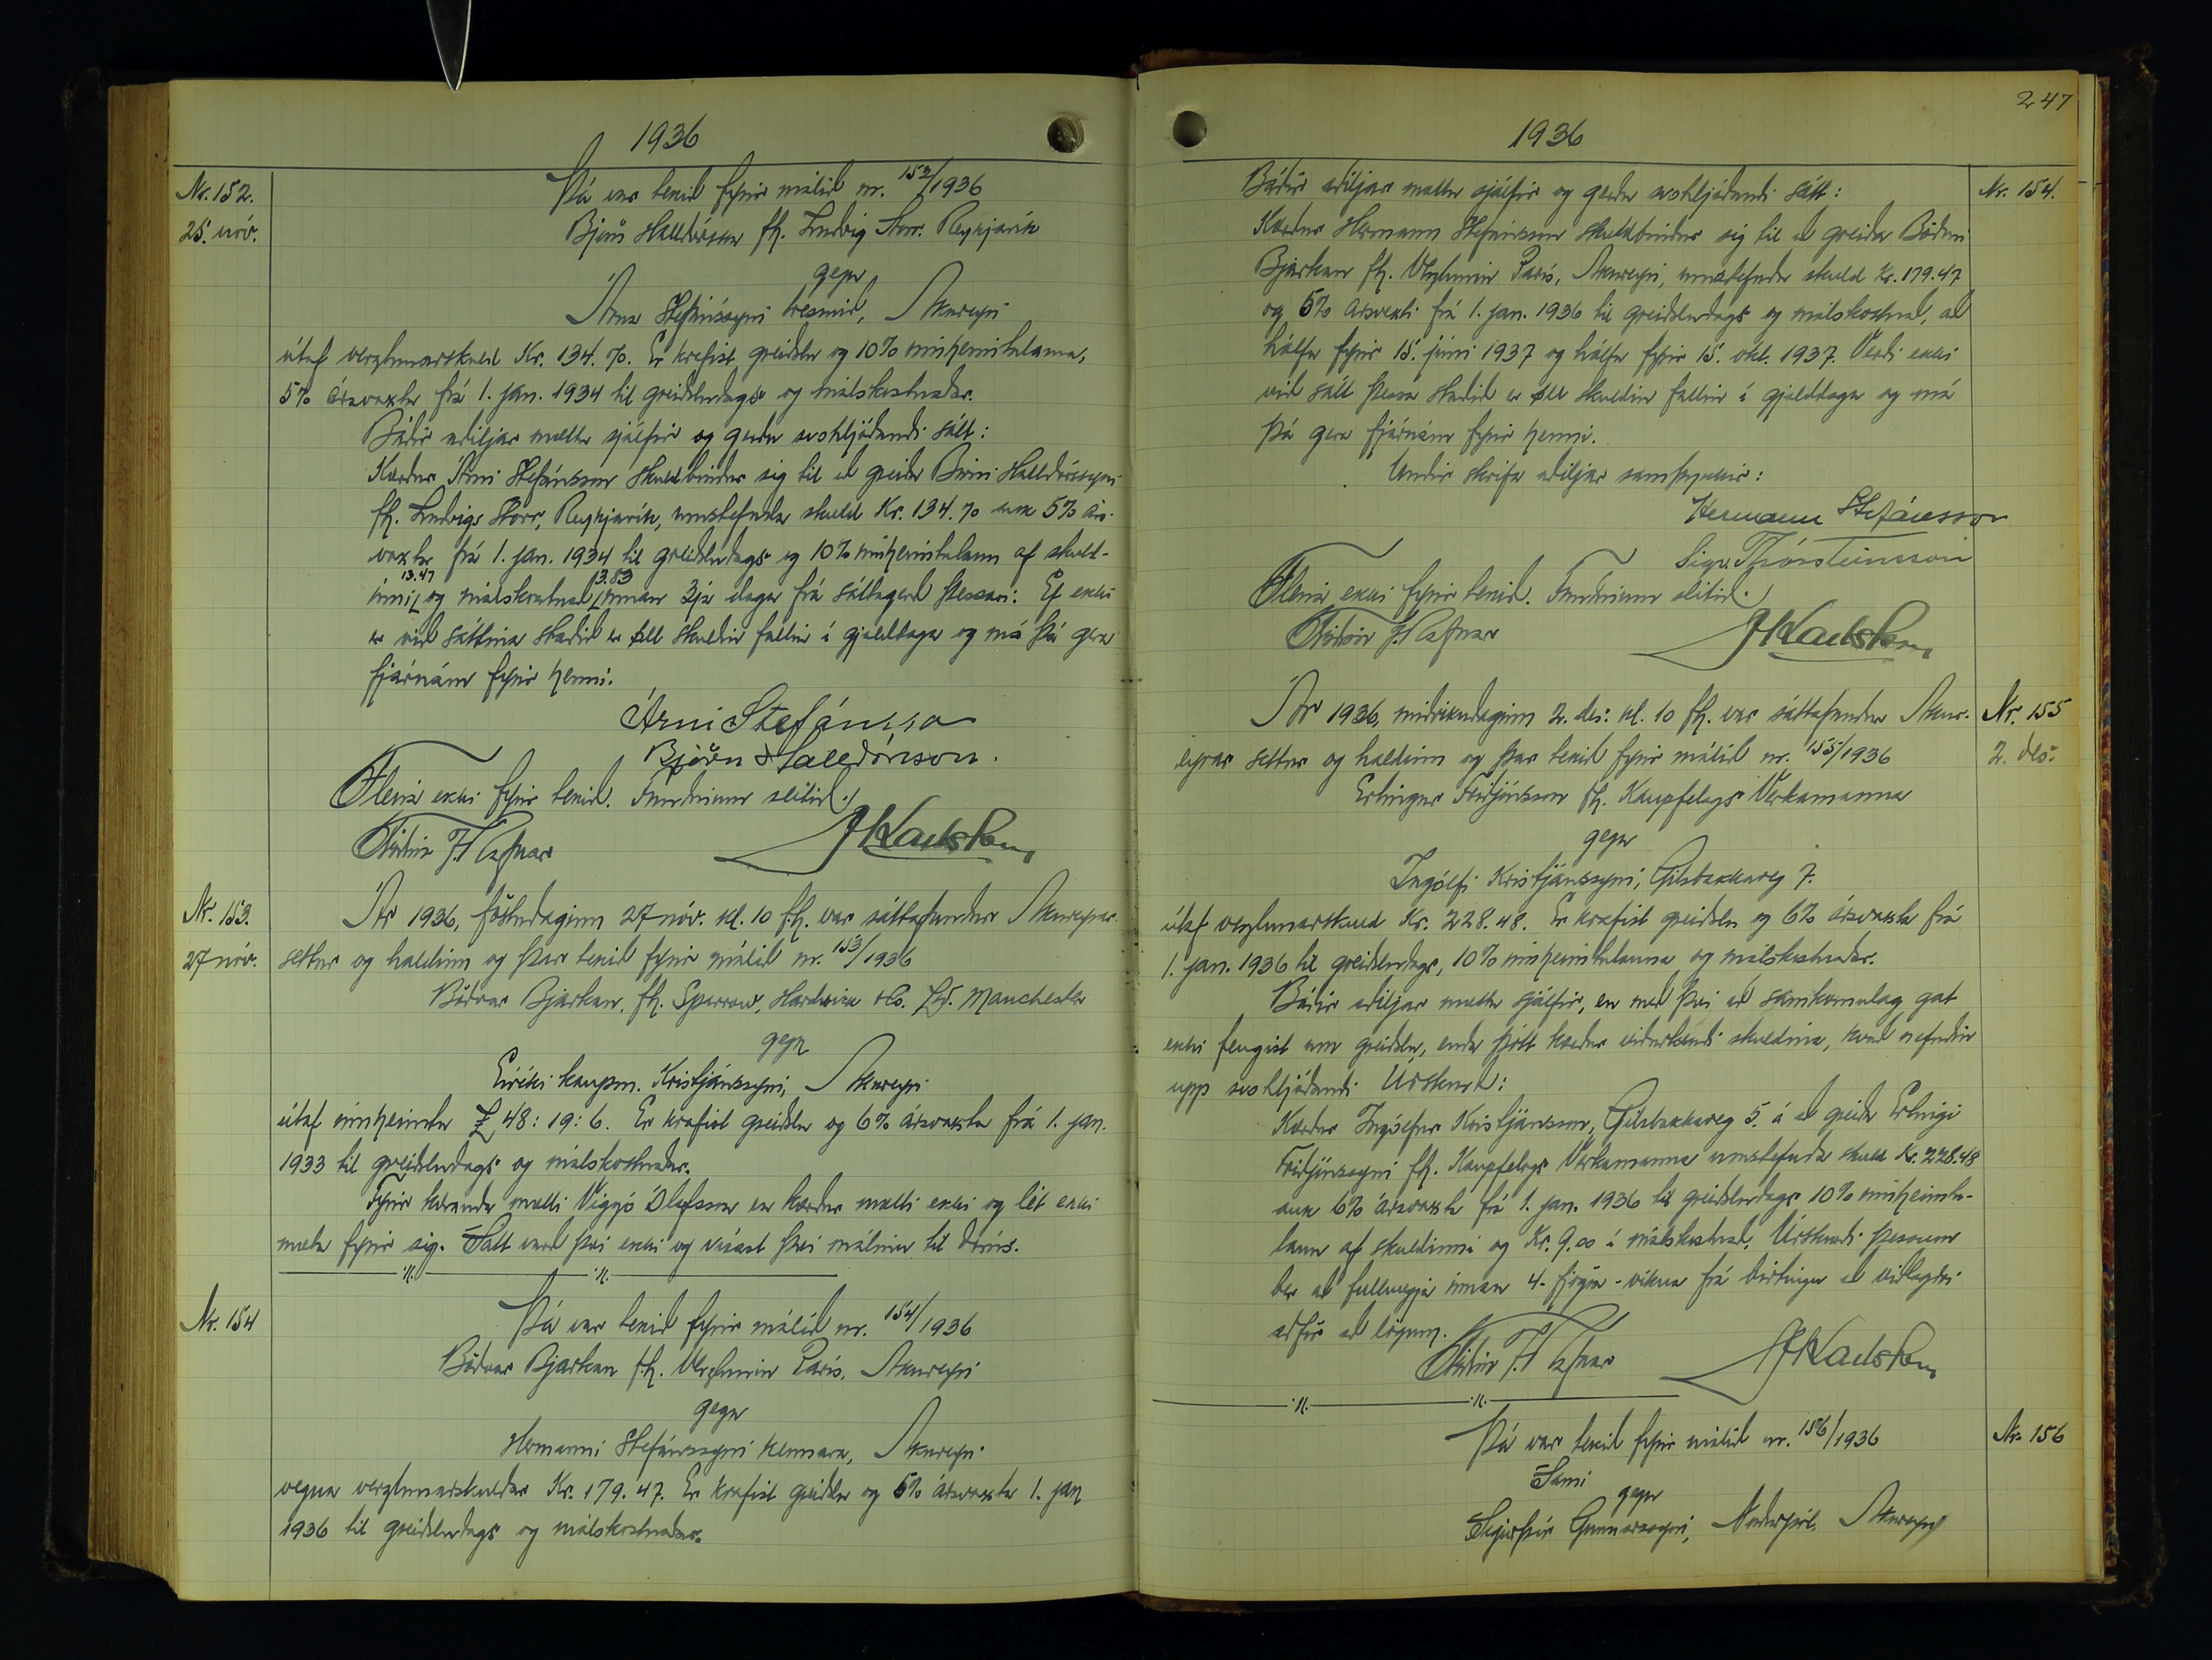 1936
Nr. 152.
25. nóv.
Þá var tekið fyrir málið nr. 152/1936
Björn Halldórsson fh. Ludvig Storr. Reykjavík
gegn
Árna Stefánssyni tresmið, Akureyri
útaf verzlunarskuld Kr. 134.70. Er krafist greiðslu og 10% innheimtulauna,
5% ársvaxta frá 1. jan. 1934 til greiðsludags og málskostnaðar.
Báðir aðiljar mættu sjálfir og gerðu svohljóðandi sátt:
Kærður Árni Stefánsson skuldbindur sig til að greiða Birni Halldórssyni
fh. Ludvigs Storr, Reykjavík, umstefnda skuld Kr. 134.70 auk 5% árs-
vaxta frá 1. jan. 1934 til greiðsludags og 10% innheimtulaun af skuld-
13.47 13.83
inni og málskostnað innan 3ja daga frá sáttagerð þessari: Ef ekki
er við sáttina staðið er öll skuldin fallin í gjalddaga og má þá gera
fjárnám fyrir henni.
Árni Stefánsson
Björn Halldórsson.
Fleira ekki fyrir tekið. Fundinum slitið.
Friðrik J. Rafnar
Nr. 153.
27 nóv.
Ár 1936, föstudaginn 27 nóv. kl. 10 fh. var sáttafundur Akureyrar
settur og haldinn og þar tekið fyrir málið nr. 153/1936
Böðvar Bjarkan, fh. Sparrow, Hardwick & Co. Ltd. Manchester
gegn
Eiríki kaupm. Kristjánssyni, Akureyri
útaf innheimtu £ 48:19:6. Er krafist greiðslu og 6% ársvaxta frá 1. jan.
1933 til greiðsludags og málskostnaðar.
Fyrir kæranda mætti Viggó Ólafsson en kærður mætti ekki og lét ekki
mæta fyrir sig. Sátt varð því ekki og vísast því málinu til dóms.
Nr. 154
Þá var tekið fyrir málið nr. 154/1936
Böðvar Bjarkan fh. Verzlunin París, Akureyri
gegn
Hermanni Stefánssyni kennara, Akureyri
vegna verzlunarskuldar Kr. 179.47. Er krafist greiðslu og 5% ársvaxta 1. jan
1936 til greiðsludags og málskostnaðar.
247
1936
Nr. 154.
Báðir aðiljar mættu sjálfir og gerðu svohljóðandi sátt:
Kærður Hermann Stefánsson skuldbindur sig til að greiða Böðvari
Bjarkan fh. Verzlunin París, Akureyri, umstefnda skuld Kr. 179.47
og 5% ársvexti frá 1. jan. 1936 til greiðsludags og málskostnað, að
hálfu fyrir 15. júní 1937 og hálfu fyrir 15. okt. 1937. Verði ekki
við sátt þessa staðið er öll skuldin fallin í gjalddaga og má
þá gera fjárnám fyrir henni.
Undir skrifa aðiljar samþykkir:
Hermann Stefánsson
Sigr. Thorsteinsson
Fleira ekki fyrir tekið. Fundinum slitið.
Friðrik J. Rafnar
Nr. 155
2. des.
Ár 1936, miðvikudaginn 2. des. kl. 10 fh. var sáttafundur Akur-
eyrar settur og haldinn og þar tekið fyrir málið nr. 155/1936
Erlingur Friðjónsson fh. Kaupfelags Verkamanna
gegn
Ingólfi Kristjánssyni, Gilsbakkaveg 7.
útaf verzlunarskuld Kr. 228.48. Er krafist greiðslu og 6% ársvaxta frá
1. jan. 1936 til greiðsludags, 10% innheimtulauna og málskostnaðar.
Báðir aðiljar mættu sjálfir, en með því að samkomulag gat
ekki fengist um greiðslu, enda þótt kærður viðurkendi skuldina, kvað nefndin
upp svohljóðandi Úrskurð:
Kærður Ingólfur Kristjánsson, Gilsbakkaveg 5. á að greiða Erlingi
Friðjónssyni fh. Kaupfelags Verkamanna umstefnda skuld Kr. 228.48
auk 6% ársvaxta frá 1. jan. 1936 til greiðsludags 10% innheimtu-
laun af skuldinni og Kr. 9.00 í málskostnað. Úrskurði þessum
ber að fullnægja innan 4- fjögra - vikna frá birtingu að viðlagðri
aðför að lögum.
Friðrik J. Rafnar
Nr. 156
Þá var tekið fyrir málið nr. 156/1936
Sami
gegn
Gunnarssyni, Akureyri